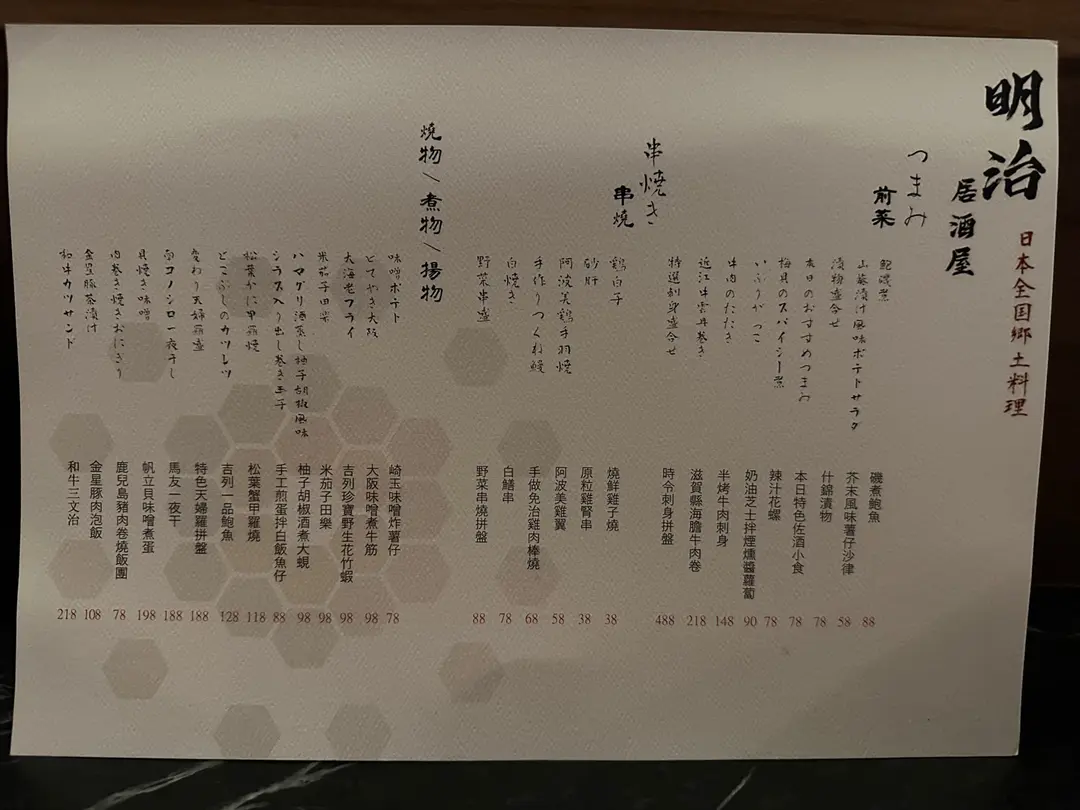 明治
居酒屋
日本全国郷土料理
つまみ
前菜
鮑磯煮
磯煮鮑魚
88
山葵漬け風味ポテトサラダ
芥末風味薯仔沙律
58
漬物盛合せ
什錦漬物
78
本日のおすすめつまみ
本日特色佐酒小食
78
梅貝のスパイシー煮
辣汁花螺
78
いぶりがっこ
奶油芝士拌煙燻醬蘿蔔
90
牛肉のたたき
半烤牛肉刺身
148
近江牛雲丹巻き
滋賀縣海膽牛肉卷
218
特選刺身盛合せ
時令刺身拼盤
488
串焼き
串燒
鶏白子
燒鮮雞子燒
38
砂肝
原粒雞腎串
38
阿波美鶏手羽焼
阿波美雞翼
58
手作りつくね鰻
手做免治雞肉棒燒
68
白焼き
白鱔串
78
野菜串盛
野菜串燒拼盤
88
燒物/煮物/揚物
味噌ポテト
崎玉味噌炸薯仔
78
どてやき大阪
大阪味噌煮牛筋
98
大海老フライ
吉列珍寶野生花竹蝦
98
米茄子田楽
米茄子田樂
98
ハマグリ酒蒸し柚子胡椒風味
柚子胡椒酒煮大蜆
98
シラス入り出し巻き玉子
手工煎蛋拌白飯魚仔
88
松葉かに甲羅焼
松葉蟹甲羅燒
118
とこぶしのカツレツ
吉列一品鮑魚
128
変わり天婦羅盛
特色天婦羅拼盤
188
コノシロ一夜干し
馬友一夜干
188
貝焼き味噌
帆立貝味噌煮蛋
198
肉巻き焼きおにぎり
鹿兒島豬肉卷燒飯團
78
金星豚茶漬け
金星豚肉泡飯
108
和牛カツサンド
和牛三文治
218